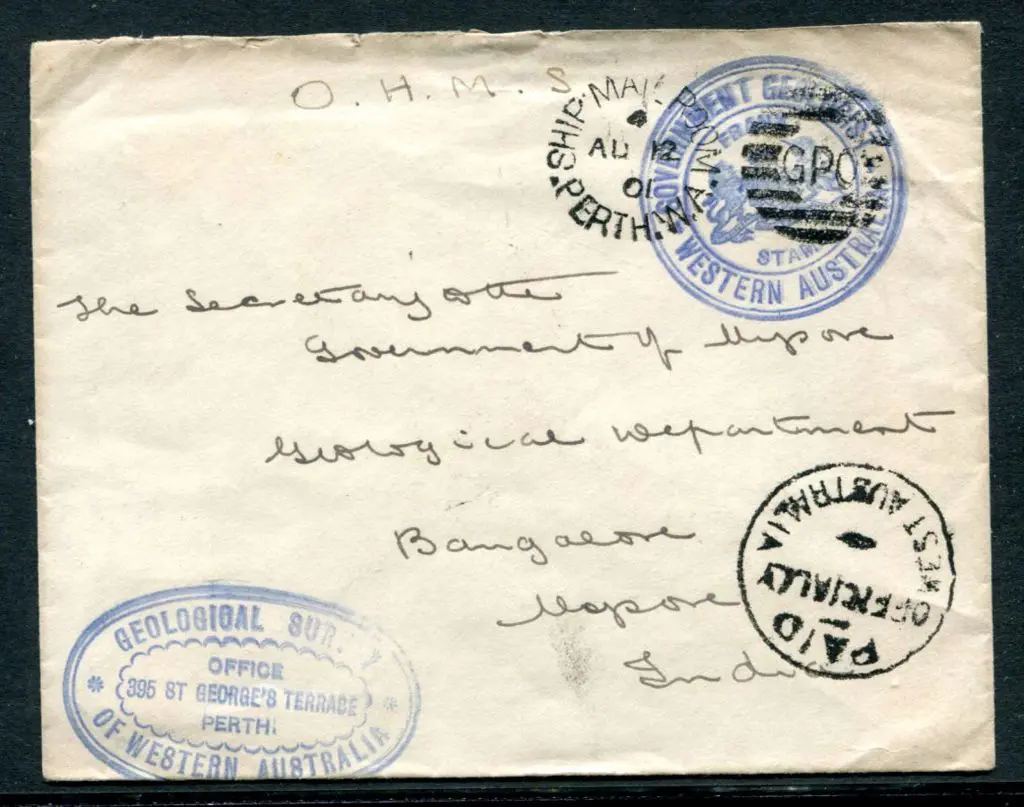 O. H. M. S
SHIP MAIL ROOM
AU 12
01
PERTH. W.A.
GPO
GOVERNMENT GEOLOGIST
FRANK
STAMP
WESTERN AUSTRALIA
The Secretary to the
Government of Mysore
Geological Department
Bangalore
Mysore
India
PAID
OFFICIALLY
WEST AUSTRALIA
GEOLOGICAL SUR. Y
OFFICE
395 ST GEORGE'S TERRACE
PERTH.
OF WESTERN AUSTRALIA